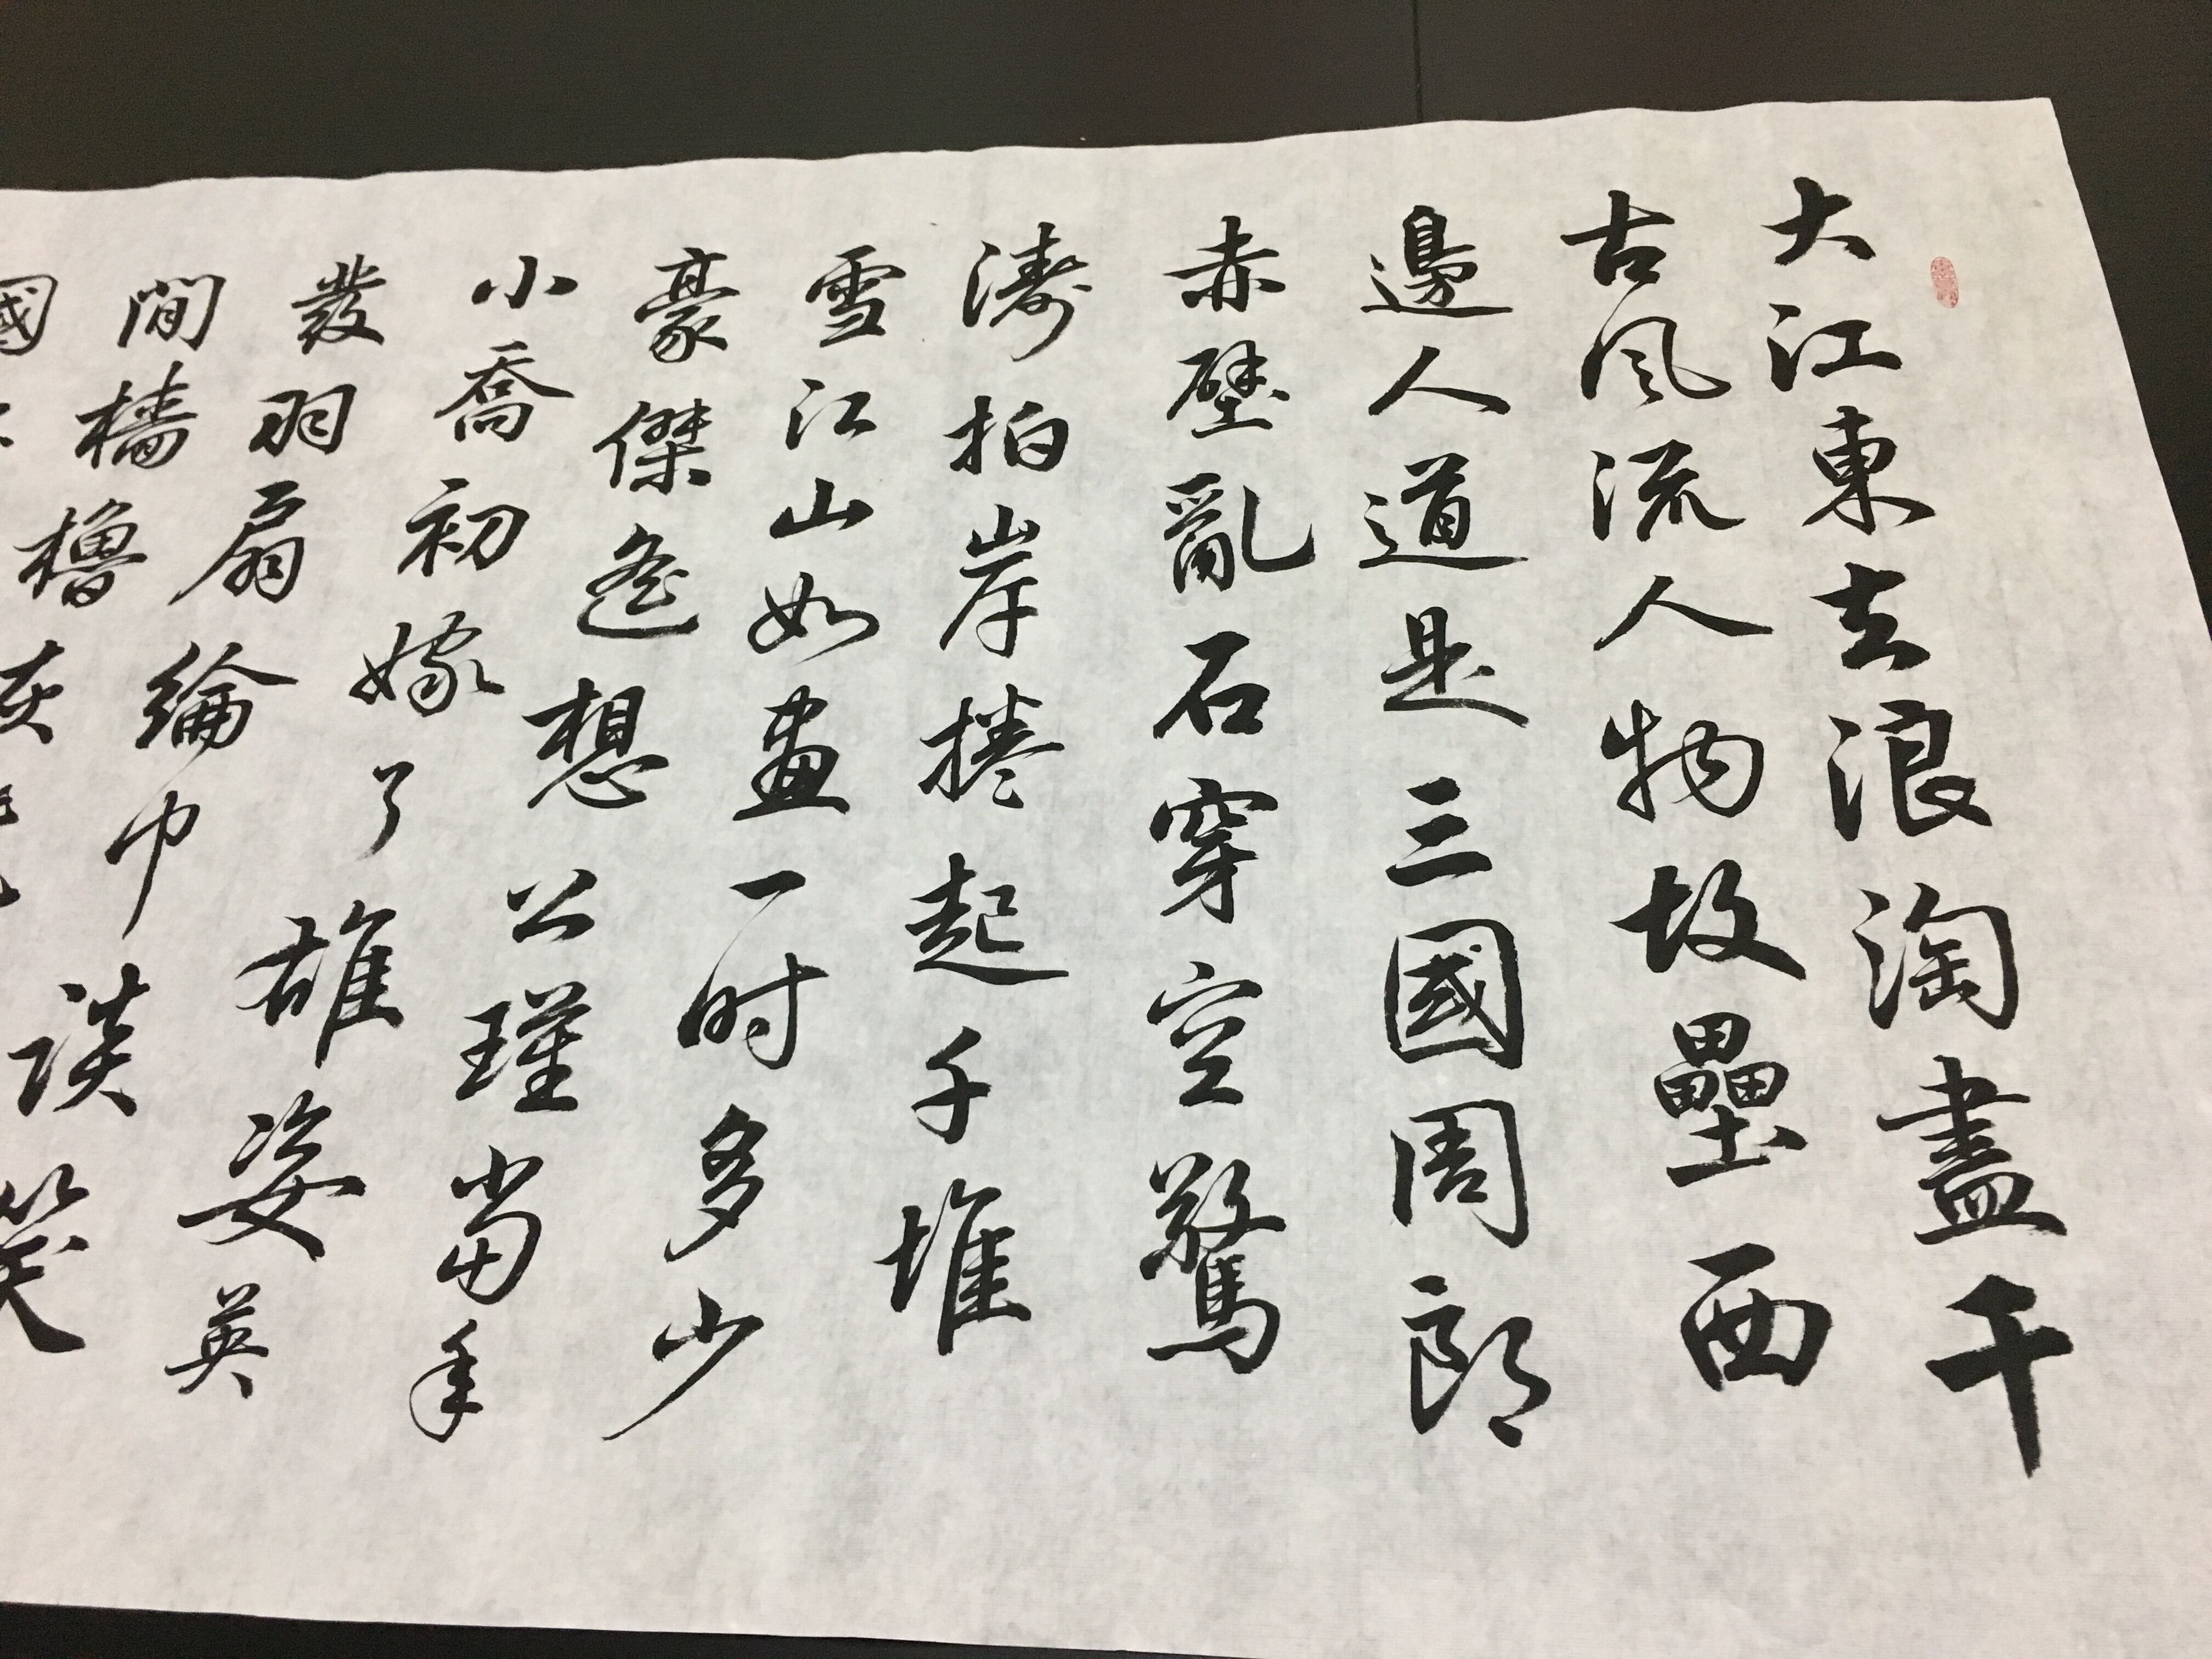 大江東去浪淘盡千
古風流人物故壘西
邊人道是三國周郎
赤壁亂石穿空驚
濤拍岸捲起千堆
雪江山如畫一时多少
豪傑遙想公瑾當年
小喬初嫁了雄姿英
發羽扇綸巾談笑
間檣櫓灰
國